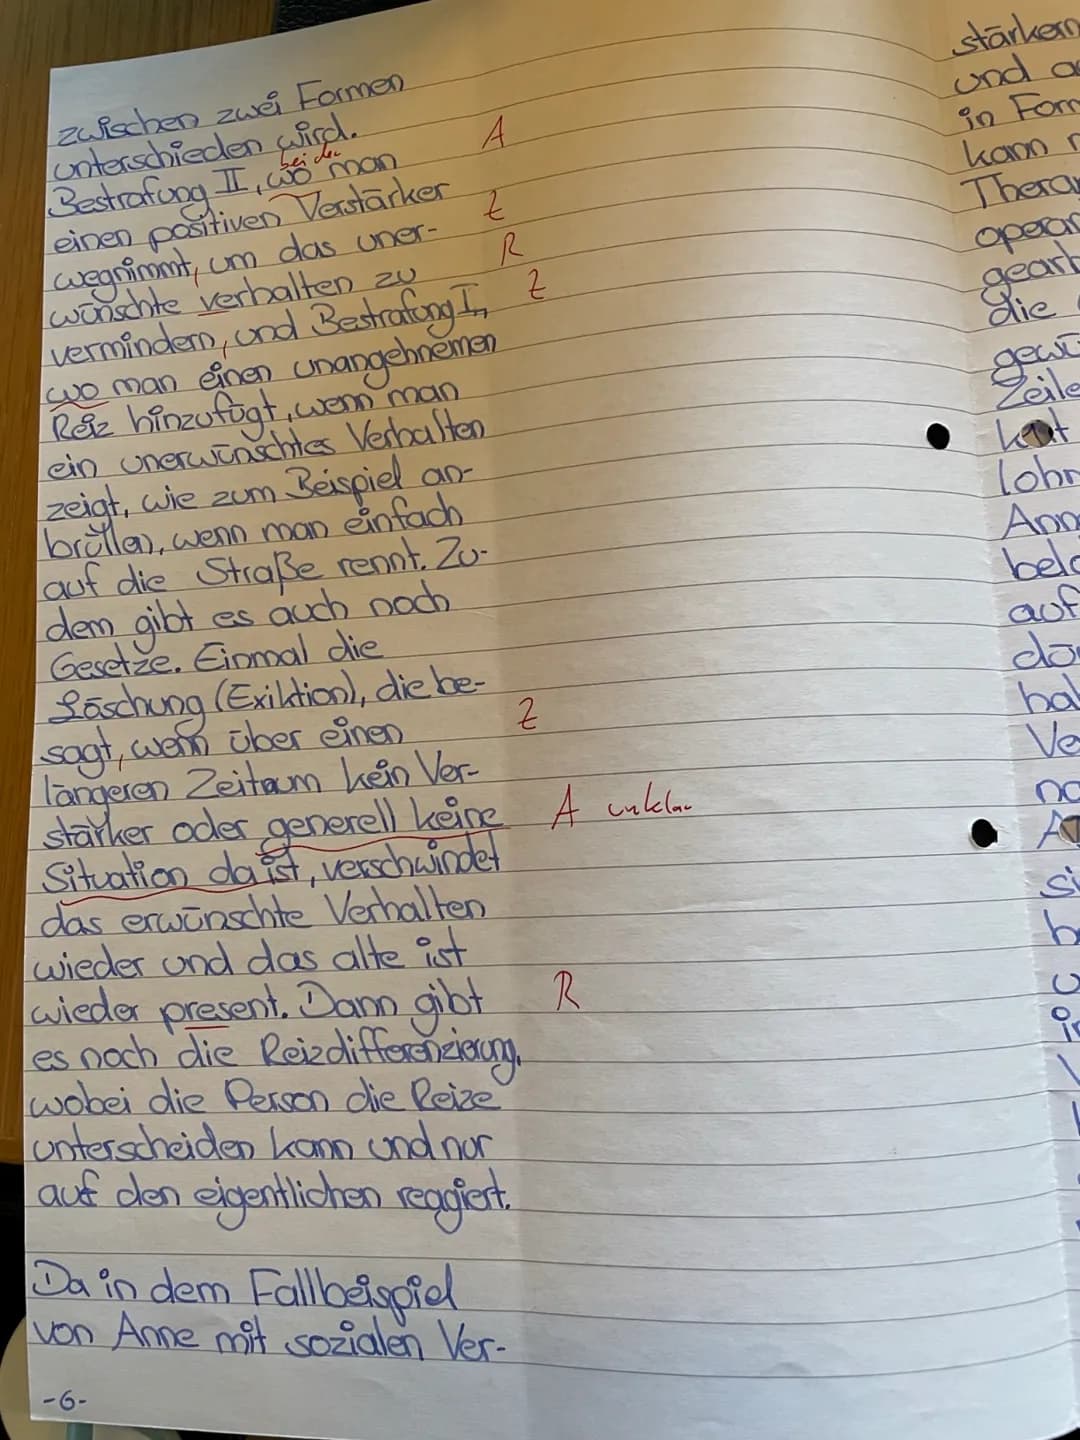 zwischen zwei Formen
unterschieden wird. A
bei der
Bestrafung II, wo man
einen positiven Verstärker Z
wegnimmt, um das uner- R
wünschte verhalten zu Z
vermindern, und Bestrafung I,
wo man einen unangehnemen
Reiz hinzufügt, wenn man
ein unerwünschtes Verhalten
zeigt, wie zum Beispiel an-
brüllen, wenn man einfach
auf die Straße rennt. Zu-
dem gibt es auch noch
Gesetze. Einmal die
Löschung (Exiktion), die be-
sagt, wenn über einen Z
längeren Zeitaum kein Ver-
stärker oder generell keine A unklar
Situation da ist, verschwindet
das erwünschte Verhalten
wieder und das alte ist
wieder present. Dann gibt R
es noch die Reizdifferenzierung,
wobei die Person die Reize
unterscheiden kann und nur
auf den eigentlichen reagiert.
Da in dem Fallbeispiel
von Anne mit sozialen Ver-
-6-
stärkern
und
in Form
kann
Thera
operan
gearb
die
gewü
Zeile
lohn
Ann
belo
auf
hal
Ve
no